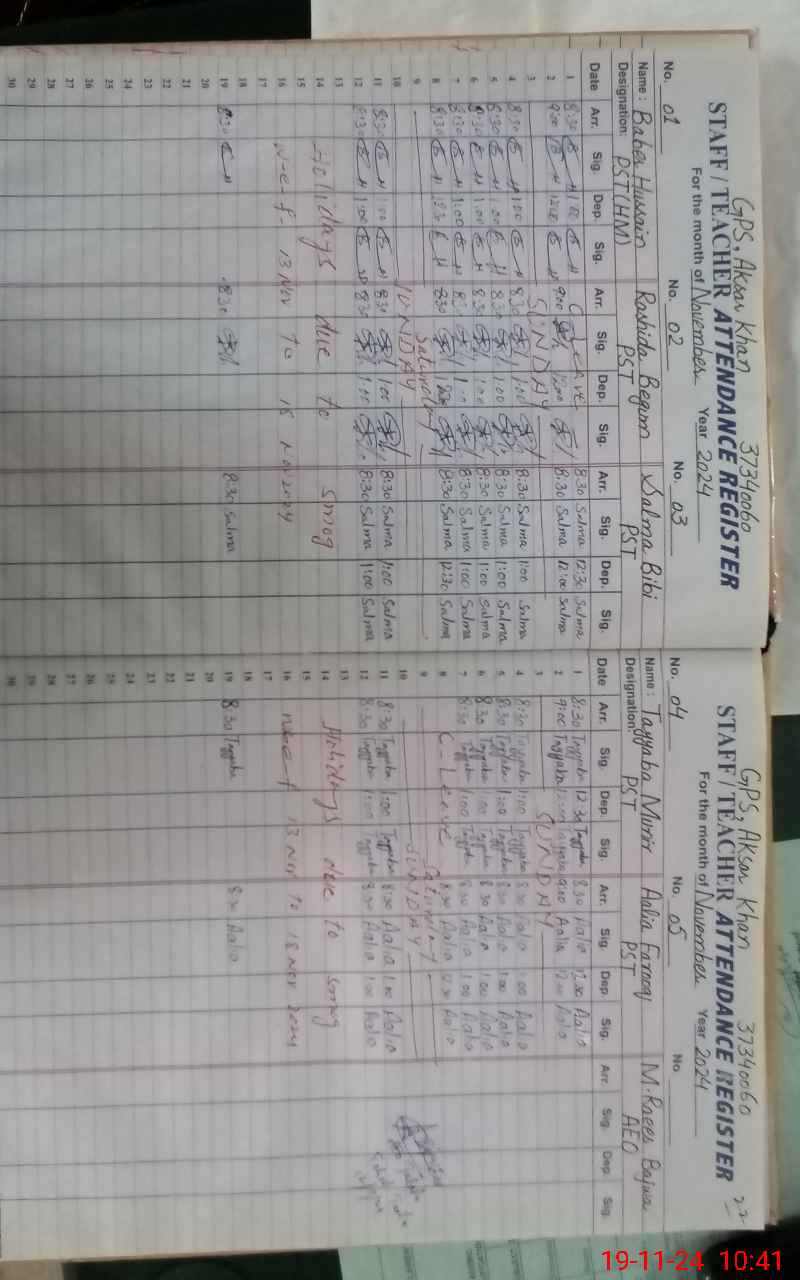 GPS, Aksar Khan 37340060
STAFF / TEACHER ATTENDANCE REGISTER
For the month of November Year 2024
No. 01 No. 02 No. 03
Name: Baber Hussain Rashida Begum Salma Bibi
Designation: PST(HM) PST PST
Date Arr. Sig. Dep. Sig. Arr. Sig. Dep. Sig. Arr. Sig. Dep. Sig.
1 8:30 1:00 C-Leave 8:30 Salma 12:30 Salma
2 9:00 12:00 9:00 12:00 8:30 Salma 12:00 Salma
3 SUNDAY
4 8:30 1:00 8:30 1:00 8:30 Salma 1:00 Salma
5 8:30 1:00 8:30 1:00 8:30 Salma 1:00 Salma
6 8:30 1:00 8:30 1:00 8:30 Salma 1:00 Salma
7 8:30 1:00 8:30 1:00 8:30 Salma 1:00 Salma
8 8:30 12:30 8:30 8:30 Salma 12:30 Salma
9 Saturday
10 SUNDAY
11 8:30 1:00 8:30 1:00 8:30 Salma 1:00 Salma
12 8:30 1:00 8:30 1:00 8:30 Salma 1:00 Salma
13
14 Holidays due to smog
15
16 w-e-f- 13 Nov to 18 Nov 2024
17
18
19 8:30 8:30 8:30 Salma
20
21
22
23
24
25
26
27
28
29
30
GPS, Aksar Khan 37340060 22
STAFF / TEACHER ATTENDANCE REGISTER
For the month of November Year 2024
No. 04 No. 05 No
Name: Tayyaba Munir Aalia Farooq M. Raees Bajwa
Designation: PST PST AEO
Date Arr. Sig. Dep. Sig. Arr. Sig Dep. Sig. Arr. Sig. Dep Sig.
1 8:30 Tayyaba 12:30 Tayyaba 8:30 Aalia 12:30 Aalia
2 9:00 Tayyaba 12:00 Tayyaba 9:00 Aalia 12:00 Aalia
3 SUNDAY
4 8:30 Tayyaba 1:00 Tayyaba 8:30 Aalia 1:00 Aalia
5 8:30 Tayyaba 1:00 Tayyaba 8:30 Aalia 1:00 Aalia
6 8:30 Tayyaba 1:00 Tayyaba 8:30 Aalia 1:00 Aalia
7 8:30 Tayyaba 1:00 Tayyaba 8:30 Aalia 1:00 Aalia
8 C-Leave 8:30 Aalia 12:30 Aalia
9 Saturday
10 SUNDAY
11 8:30 Tayyaba 1:00 Tayyaba 8:30 Aalia 1:00 Aalia
12 8:30 Tayyaba 1:00 Tayyaba 8:30 Aalia 1:00 Aalia
13
14 Holidays due to smog
15
16 w-e-f 13 Nov to 18 Nov 2024
17
18
19 8:30 Tayyaba 8:30 Aalia
20
21
22
23
24
25
26
27
28
29
30
19-11-24 10:41